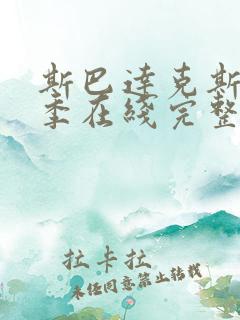 斯巴达克斯
季在线完整
拉卡拉
未经同意禁止转载